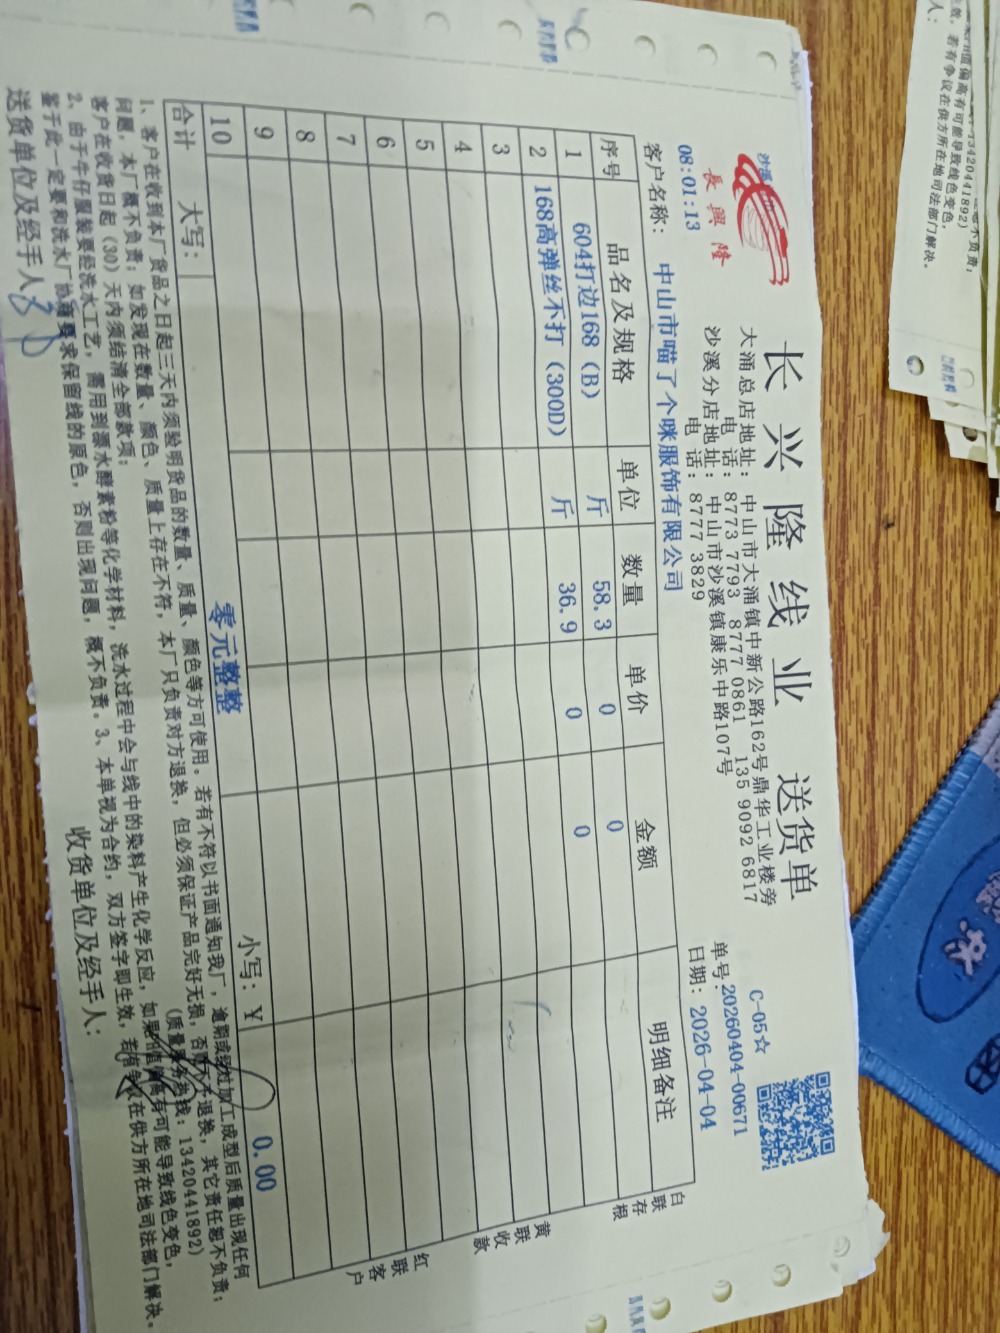 长兴隆线业 送货单
長興隆
C-05☆
大涌总店地址：中山市大涌镇中新公路162号鼎华工业楼旁
电话：8773 7793 8777 0861 135 9092 6817
沙溪分店地址：中山市沙溪镇康乐中路107号
电话：8777 3829
单号:20260404-00671
08:01:13
日期：2026-04-04
客户名称：中山市喵了个咪服饰有限公司
序号 品名及规格 单位 数量 单价 金额 明细备注
1 604打边168（B） 斤 58.3 0 0
2 168高弹丝不打（300D） 斤 36.9 0 0
3
4
5
6
7
8
9
10
合计 大写： 零元整整 小写：￥ 0.00
白联存根
黄联收款
红联客户
1、客户在收到本厂货品之日起三天内须验明货品的数量、质量、颜色等方可使用。若有不符以书面通知我厂，逾期或经过加工成型后质量出现任何
问题，本厂概不负责；如发现在数量、颜色、质量上存在不符，本厂只负责对方退换，但必须保证产品完好无损，否则不予退换，其它责任恕不负责；
客户在收货日起（30）天内须结清全部款项； （质量服务热线：13420441892）
2、由于牛仔服装要经洗水工艺，需用到漂水酵素粉等化学材料，洗水过程中会与线中的染料产生化学反应，如果值偏高有可能导致线色变色，
鉴于此一定要和洗水厂协商要求保留线的原色，否则出现问题，概不负责。3、本单视为合约，双方签字即生效，若有争议在供方所在地司法部门解决。
送货单位及经手人 收货单位及经手人：
值偏高有可能导致线色变色，
若有争议在供方所在地司法部门解决。
13420441892）
恕不负责；
人：